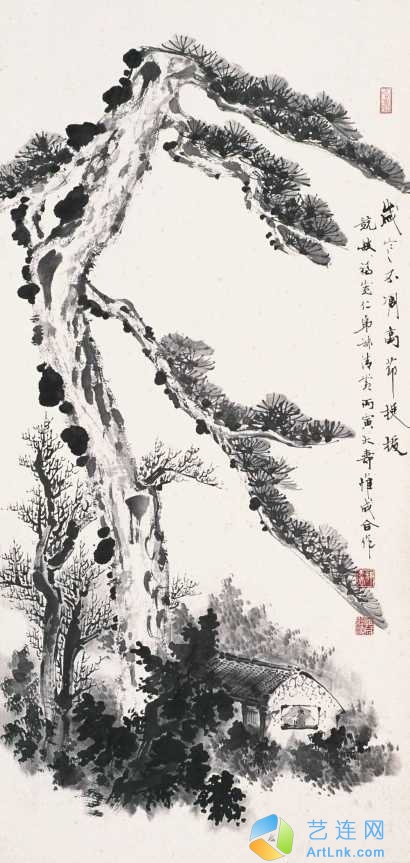 歲寒不凋高節挺拔
仁弟妹清賞丙寅大壽惟成合作
艺连网
ArtLnk.com